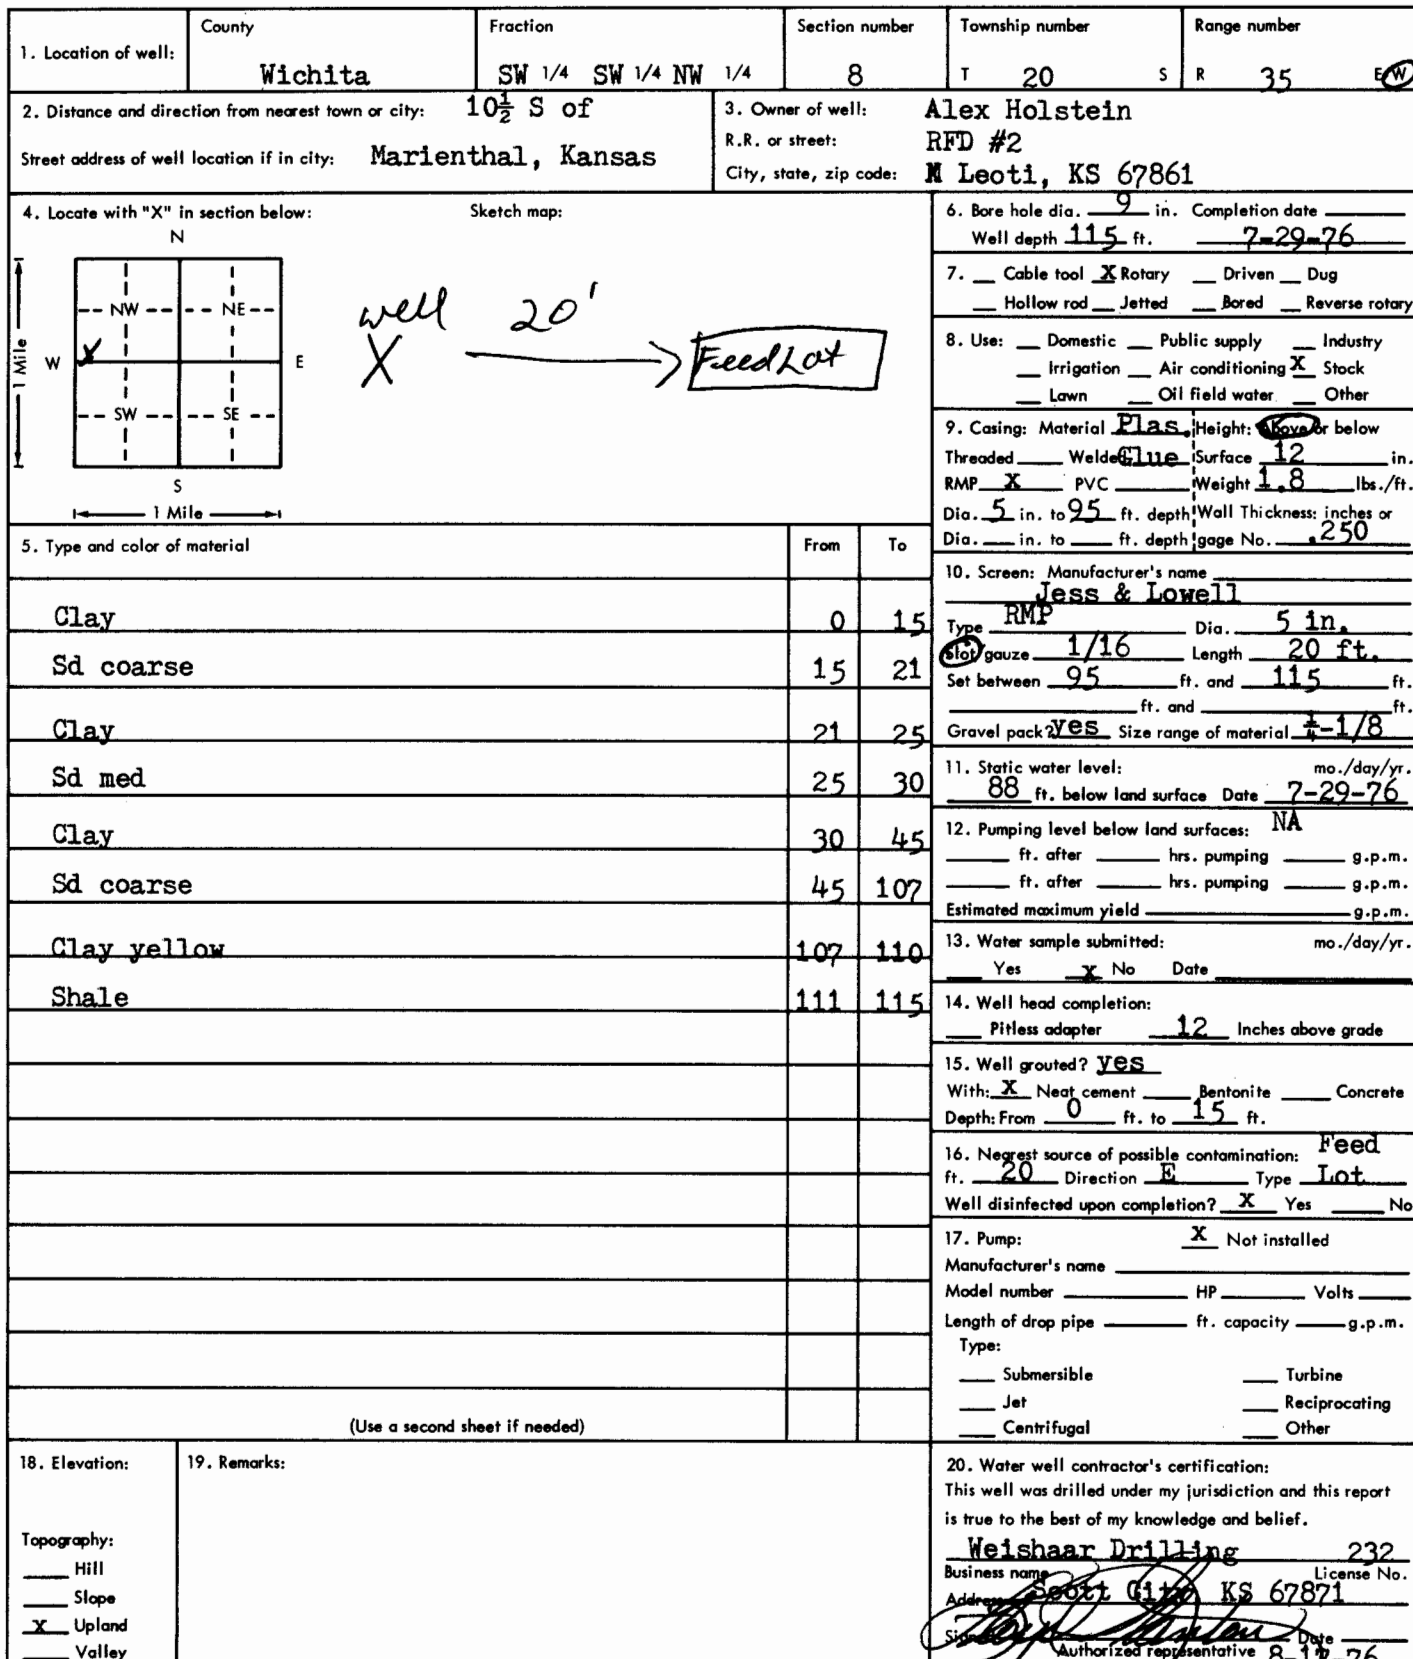 1. Location of well: County Wichita Fraction SW 1/4 SW 1/4 NW 1/4 Section number 8 Township number T 20 S Range number R 35 E W
2. Distance and direction from nearest town or city: 10½ S of
Street address of well location if in city: Marienthal, Kansas
3. Owner of well: Alex Holstein
R.R. or street: RFD #2
City, state, zip code: M Leoti, KS 67861
4. Locate with "X" in section below: Sketch map:
N
NW NE
W X E
SW SE
S
1 Mile
1 Mile
well 20'
X FeedLot
5. Type and color of material From To
Clay 0 15
Sd coarse 15 21
Clay 21 25
Sd med 25 30
Clay 30 45
Sd coarse 45 107
Clay yellow 107 110
Shale 111 115
(Use a second sheet if needed)
6. Bore hole dia. 9 in. Completion date
Well depth 115 ft. 7-29-76
7. Cable tool X Rotary Driven Dug
Hollow rod Jetted Bored Reverse rotary
8. Use: Domestic Public supply Industry
Irrigation Air conditioning X Stock
Lawn Oil field water Other
9. Casing: Material Plas. Height: Above or below
Threaded Welded Glue Surface 12 in.
RMP X PVC Weight 1.8 lbs./ft.
Dia. 5 in. to 95 ft. depth Wall Thickness: inches or
Dia. in. to ft. depth gage No. .250
10. Screen: Manufacturer's name
Jess & Lowell
Type RMP Dia. 5 in.
Slot/gauze 1/16 Length 20 ft.
Set between 95 ft. and 115 ft.
ft. and ft.
Gravel pack? yes Size range of material ¼-1/8
11. Static water level: mo./day/yr.
88 ft. below land surface Date 7-29-76
12. Pumping level below land surfaces: NA
ft. after hrs. pumping g.p.m.
ft. after hrs. pumping g.p.m.
Estimated maximum yield g.p.m.
13. Water sample submitted: mo./day/yr.
Yes X No Date
14. Well head completion:
Pitless adapter 12 Inches above grade
15. Well grouted? yes
With: X Neat cement Bentonite Concrete
Depth: From 0 ft. to 15 ft.
16. Nearest source of possible contamination: Feed
ft. 20 Direction E Type Lot
Well disinfected upon completion? X Yes No
17. Pump: X Not installed
Manufacturer's name
Model number HP Volts
Length of drop pipe ft. capacity g.p.m.
Type:
Submersible Turbine
Jet Reciprocating
Centrifugal Other
18. Elevation:
Topography:
Hill
Slope
X Upland
Valley
19. Remarks:
20. Water well contractor's certification:
This well was drilled under my jurisdiction and this report
is true to the best of my knowledge and belief.
Weishaar Drilling 232
Business name License No.
Address Scott City KS 67871
Signed Date
Authorized representative